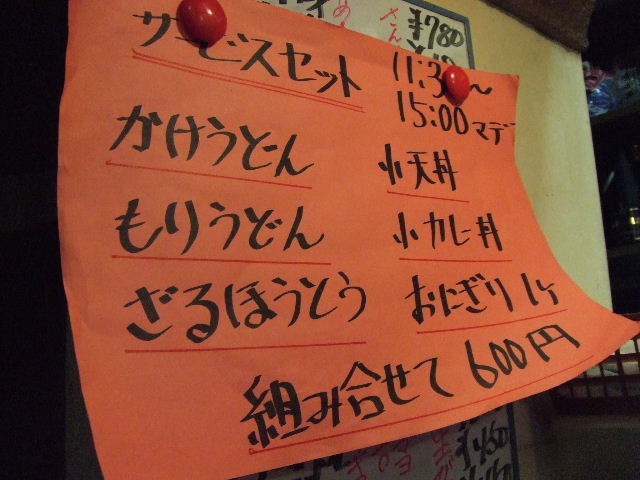 サービスセット 11:30〜
15:00マデ
かけうどん 小天丼
もりうどん 小カレー丼
ざるほうとう おにぎり1ヶ
組み合せて 600円
¥780
¥450